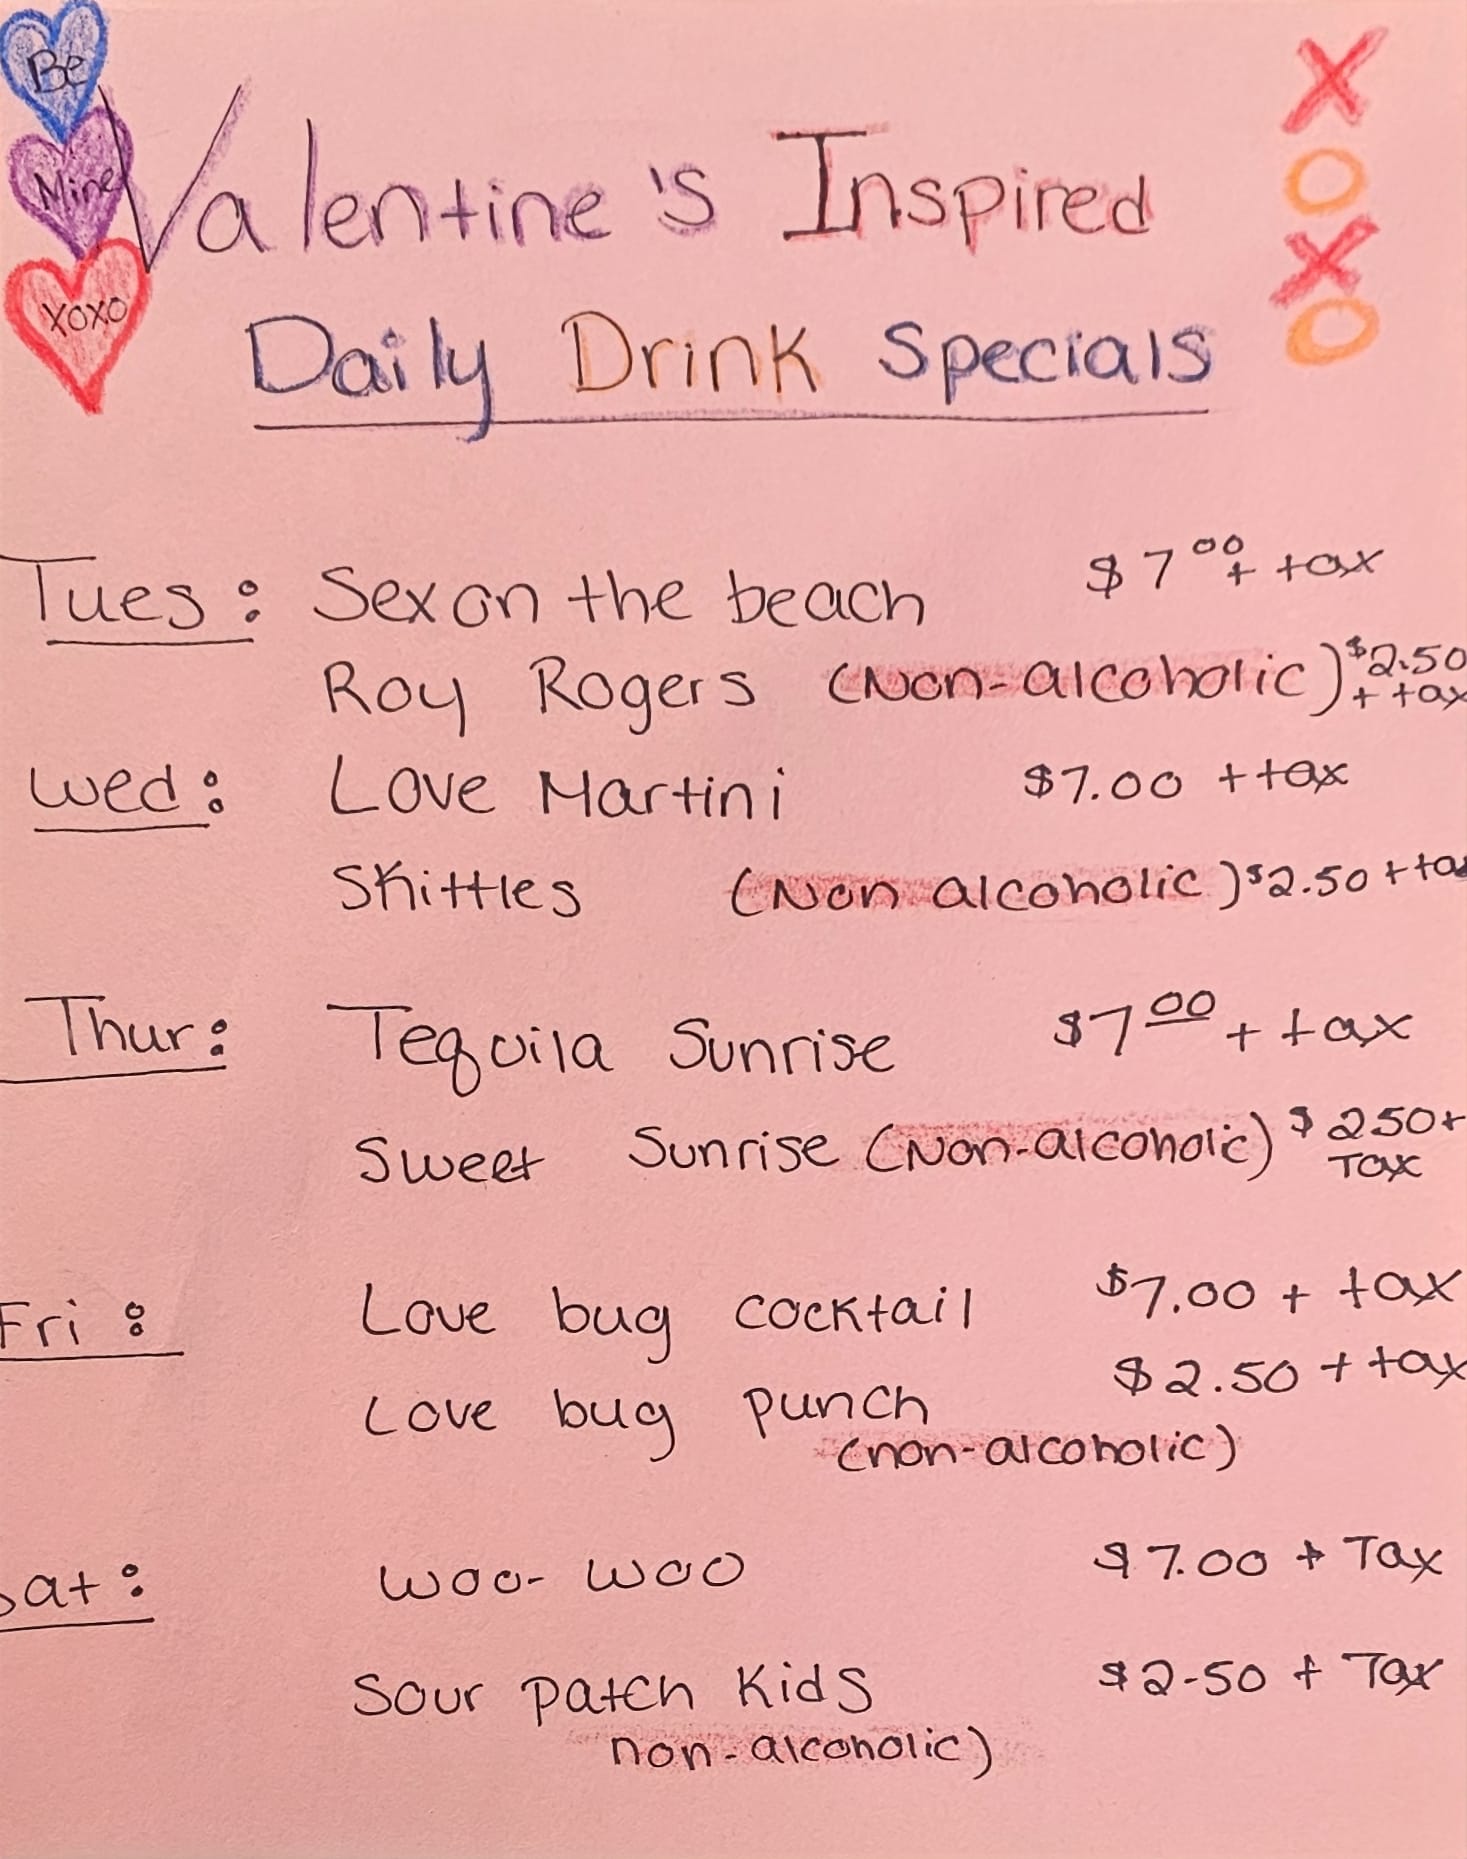 Be
Mine
XOXO
Valentine's Inspired
Daily Drink Specials
X
O
X
O
Tues: Sex on the beach $7.00 + tax
Roy Rogers (Non-alcoholic) $2.50 + tax
Wed: Love Martini $7.00 + tax
Skittles (Non alcoholic) $2.50 + tax
Thur: Tequila Sunrise $7.00 + tax
Sweet Sunrise (Non-alcoholic) $250+ Tax
Fri: Love bug cocktail $7.00 + tax
Love bug punch $2.50 + tax
(non-alcoholic)
Sat: Woo-Woo $7.00 + Tax
Sour patch Kids $2.50 + Tax
non-alcoholic)